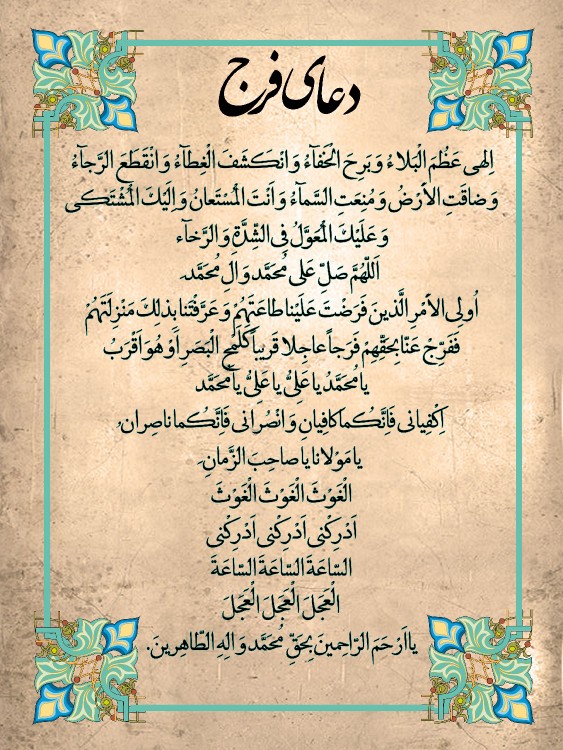 دعای فرج
اِلهی عَظُمَ الْبَلاءُ وَ بَرِحَ الْخَفآءُ وَ انْکَشَفَ الْغِطآءُ وَ انْقَطَعَ الرَّجآءُ
وَ ضاقَتِ الأَرْضُ وَ مُنِعَتِ السَّمآءُ وَ اَنْتَ الْمُسْتَعانُ وَ اِلَیْكَ الْمُشْتَکی
وَ عَلَیْكَ الْمُعَوَّلُ فِی الشِّدَّةِ وَ الرَّخآءِ
اَللّهُمَّ صَلِّ عَلی مُحَمَّدٍ وَ الِ مُحَمَّدٍ.
اُولِی الأَمْرِ الَّذینَ فَرَضْتَ عَلَیْنا طاعَتَهُمْ وَ عَرَّفْتَنا بِذلِكَ مَنْزِلَتَهُمْ
فَفَرِّجْ عَنّا بِحَقِّهِمْ فَرَجاً عاجِلا قَریباً کَلَمْحِ الْبَصَرِ اَوْ هُوَ اَقْرَبُ
یا مُحَمَّدُ یا عَلِیُّ یا عَلِیُّ یا مُحَمَّد
اِکْفِیانی فَاِنَّکُما کافِیانِ وَ انْصُرانی فَاِنَّکُما ناصِرانِ.
یا مَوْلانا یا صاحِبَ الزَّمانِ.
الْغَوْثَ الْغَوْثَ الْغَوْثَ
اَدْرِکْنی اَدْرِکْنی اَدْرِکْنی
السّاعَةَ السّاعَةَ السّاعَةَ
الْعَجَلَ الْعَجَلَ الْعَجَلَ
یا اَرْحَمَ الرّاحِمینَ بِحَقِّ مُحَمَّدٍ وَ الِهِ الطّاهِرینَ.